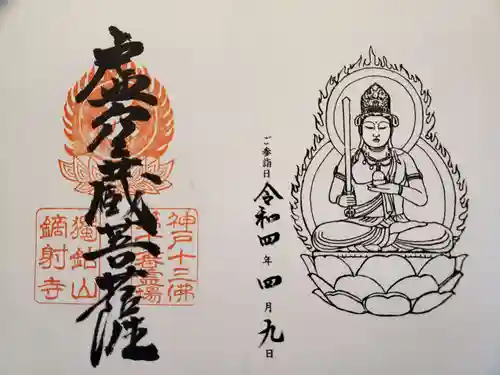 ご参詣日 令和四年四月九日
神戸十三佛
虚空蔵菩薩
獨鈷山
鏑射寺